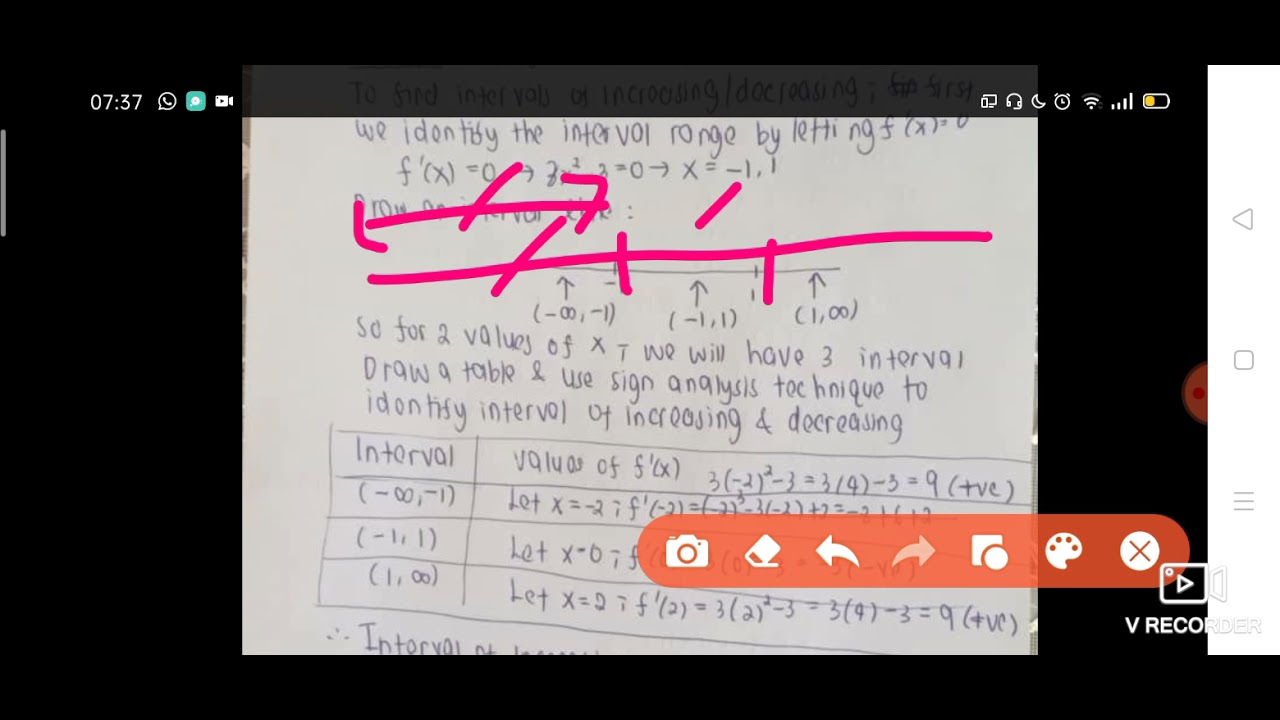 07:37
To find intervals of increasing/decreasing ; first
we identify the interval range by letting f'(x)=0
f'(x) =0 → 3x² - 3 =0 → x = -1, 1
Draw an interval line :
-1 1
(-∞,-1) (-1,1) (1,∞)
so for 2 values of x ; we will have 3 interval
Draw a table & use sign analysis technique to
identify interval of increasing & decreasing
Interval values of f'(x) 3(-2)²-3 = 3(4)-3 = 9 (+ve)
(-∞,-1) Let x=-2 ; f'(-2) =
(-1,1) Let x=0 ;
(1,∞) Let x=2 ; f'(2) = 3(2)²-3 = 3(4)-3 = 9 (+ve)
∴ Interval of
V RECORDER